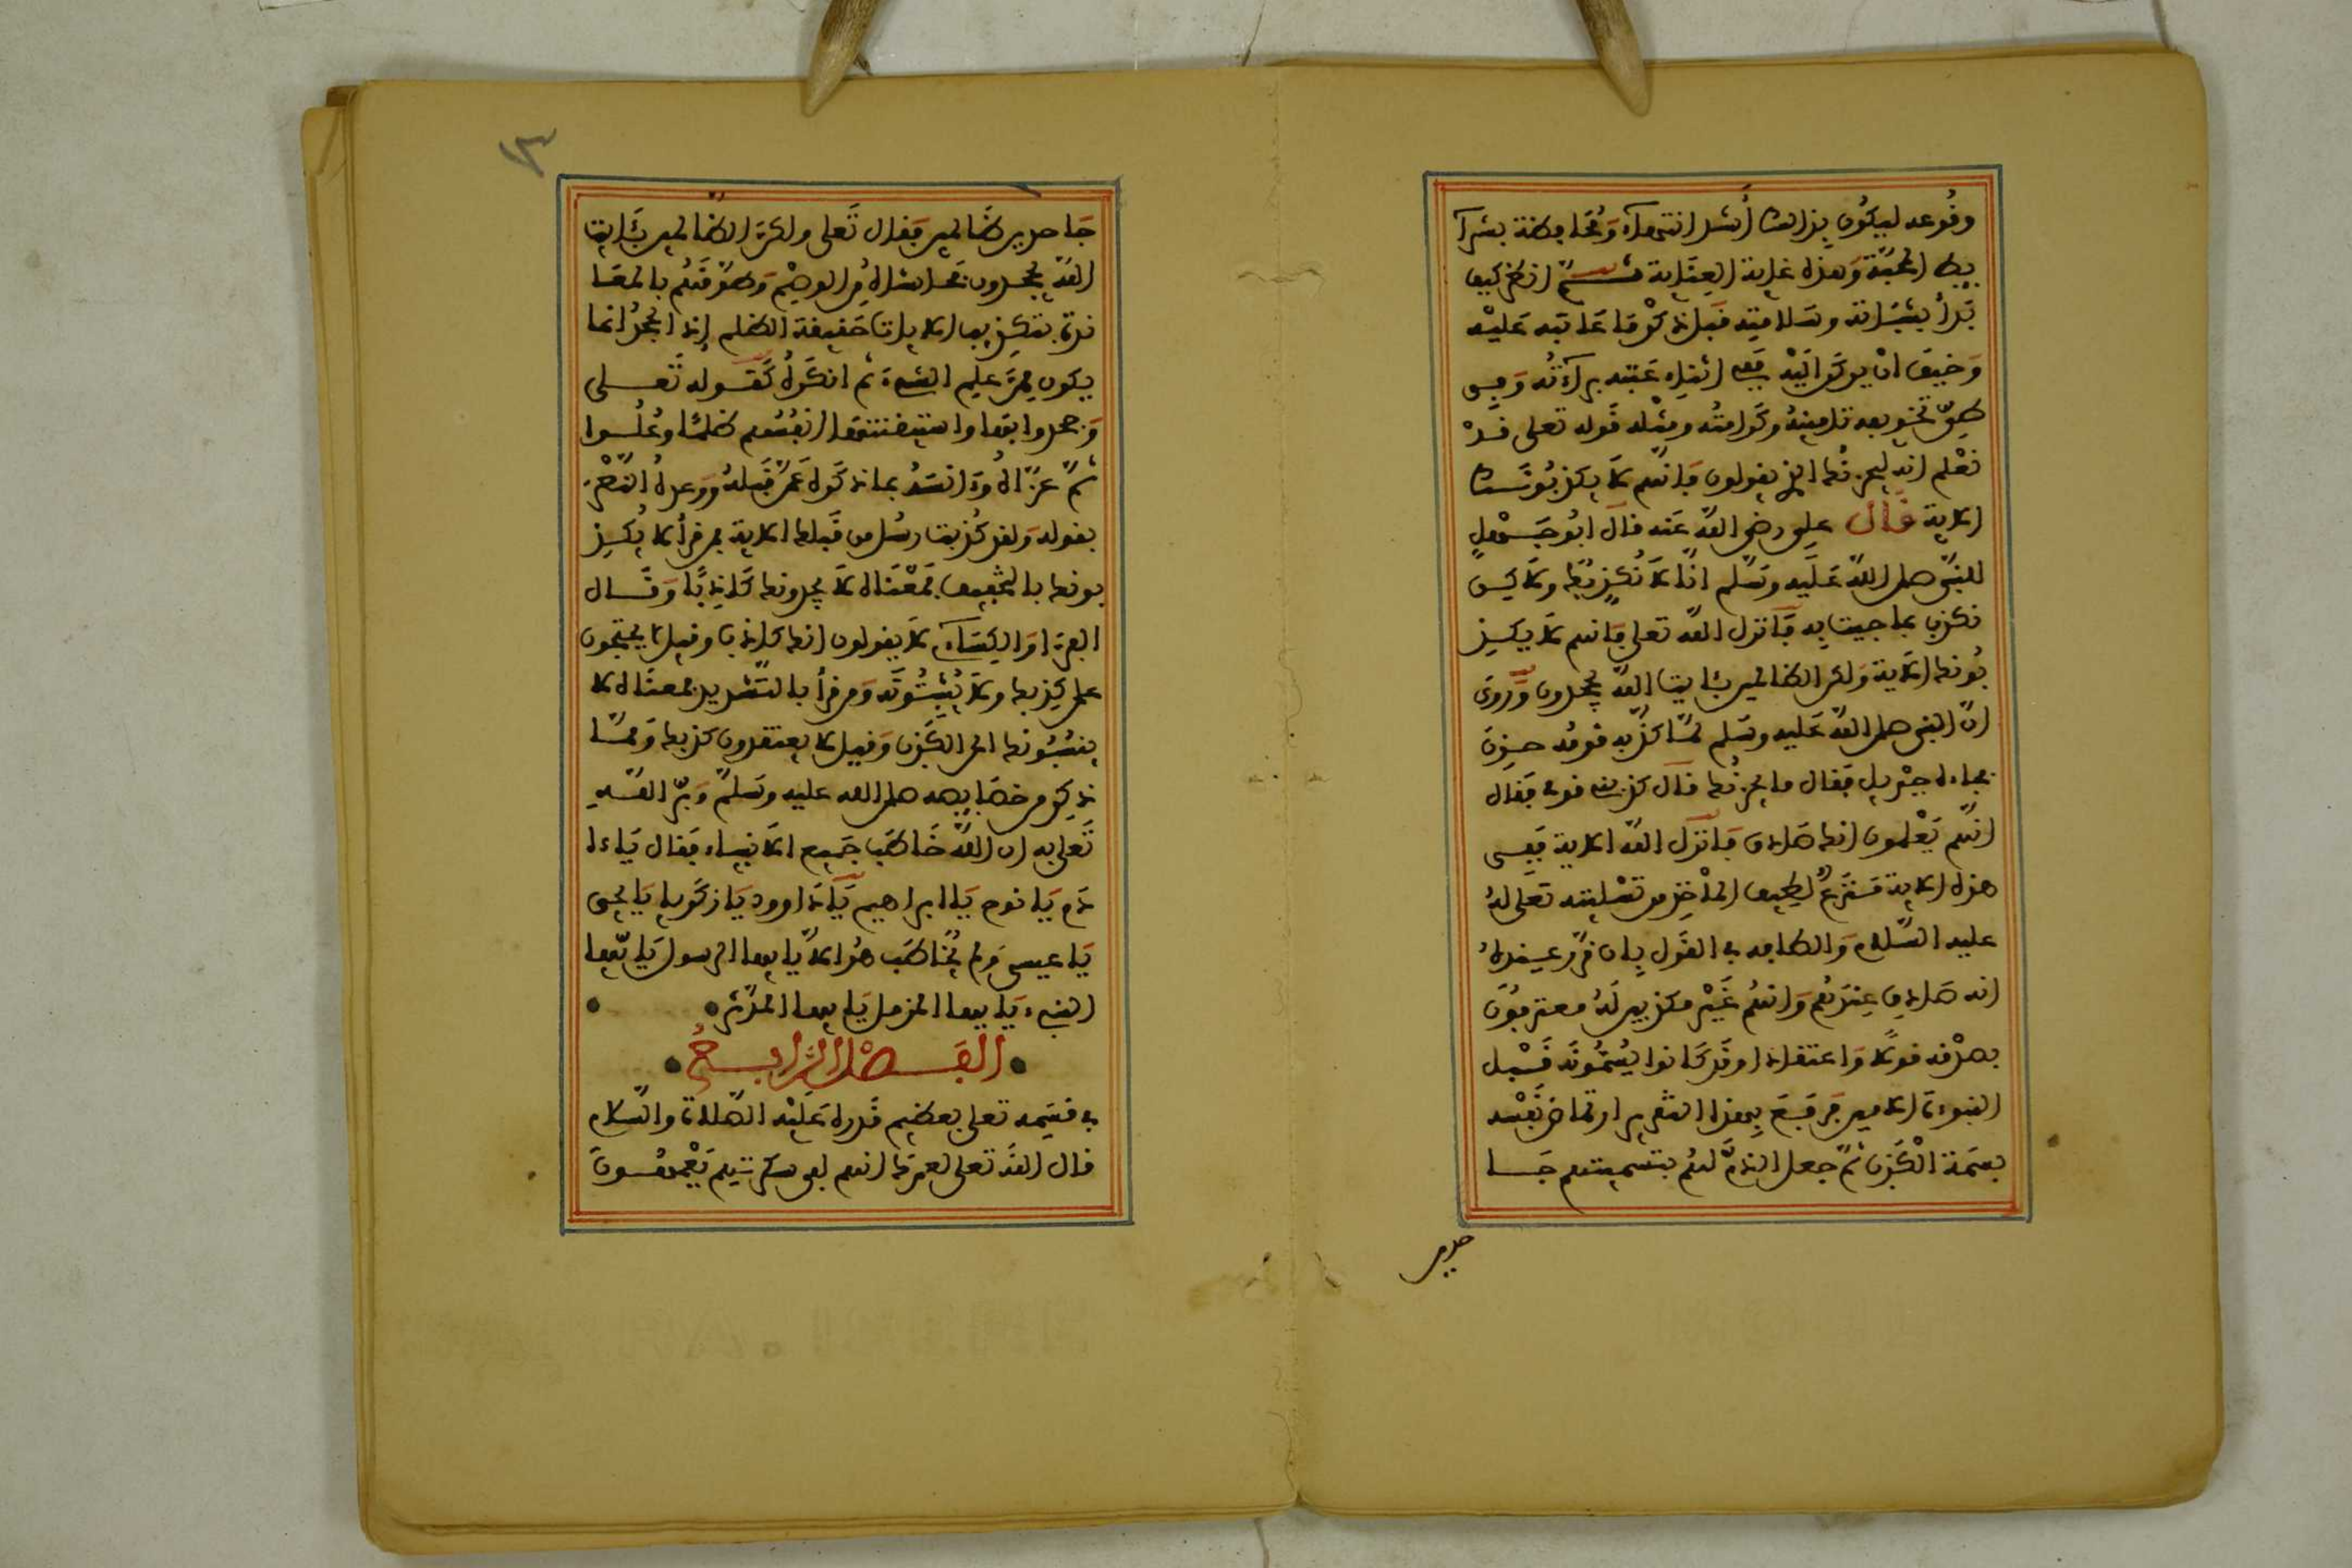 وقوعه ليكون بذلك أشد انتهاء ومحافظة بشرا
يط المحبة وهذه غاية العناية ثم انظر كيف
بدأ بثباته وسلامته قبل ذكر ما عاتبه عليه
وخيف ان يركن اليه ففي اثناء عتبه براءته وفي
طي تخويفه تامينه وكرامته ومثله قوله تعلى قد
نعلم انه ليحزنك الذي يقولون فانهم لا يكذبونك
الاية قال علي رضي الله عنه قال ابو جهل
للنبي صلى الله عليه وسلم انا لا نكذبك ولاكن
نكذب بما جيت به فانزل الله تعلى فانهم لا يكذ
بونك الاية ولكن الظالمين بئايت الله يجحدون وروي
ان النبي صلى الله عليه وسلم لما كذبه قومه حزن
فجاءه جبريل فقال ما يحزنك قال كذبني قومي فقال
انهم يعلمون انك صادق فانزل الله الاية ففي
هذه الاية منزع لطيف الماخذ من تسليته تعلى له
عليه السلام والطافه في القول بان قرر عنده
انه صادق عندهم وانهم غير مكذبين له معترفون
بصدقه قولا واعتقادا وقد كانوا يسمونه قبل
النبوءة الامين فدفع بهذا التقرير ارتماض نفسه
بسمة الكذب ثم جعل الذم لهم بتسميتهم جا
حدين
١٣
جاحدين ظالمين فقال تعلى ولكن الظالمين بئايت
الله يجحدون فحاشاه من الوصم وطوقهم بالمعا
ندة بتكذيب الايات حقيقة الظلم إذ الجحد انما
يكون ممن علم الشيء ثم انكره كقوله تعلى
وجحدوا بها واستيقنتها انفسهم ظلما وعلوا
ثم عزاه وءانسه بما ذكره عمن قبله ووعده النصر
بقوله ولقد كذبت رسل من قبلك الاية فمن قرأ لا يكذ
بونك بالتخفيف فمعناه لا يجدونك كاذبا وقال
الفراء والكساءي لا يقولون انك كاذب وقيل لا يحتجون
على كذبك ولا يثبتونه ومن قرأ بالتشديد فمعناه لا
ينسبونك الى الكذب وقيل لا يعتقدون كذبك ومما
ذكر من خصايصه صلى الله عليه وسلم وبر الله
تعلى به ان الله خاطب جميع الانبياء فقال ياءا
دم يا نوح يا ابراهيم يا داوود يا زكريا يا يحيى
يا عيسى ولم يخاطب هو الا يا ايها الرسول يا ايها
النبيء يا ايها المزمل يا ايها المدثر
الفصل الرابع
في قسمه تعلى بعظيم قدره عليه الصلاة والسلام
قال الله تعلى لعمرك انهم لفي سكرتهم يعمهون